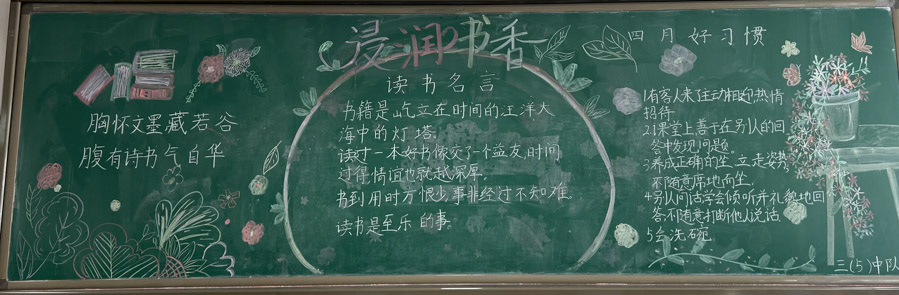 浸润书香
胸怀文墨藏若谷
腹有诗书气自华
读书名言
书籍是屹立在时间的汪洋大
海中的灯塔
读过一本好书像交了一个益友,时间
过得情谊也就越深厚。
书到用时方恨少事非经过不知难
读书是至乐的事。
四月好习惯
1有客人来了主动相迎,热情
招待
2课堂上善于在别人的回
答中发现问题
3养成正确的坐立走姿势
不随意席地而坐.
4别人问话学会倾听并礼貌地回
答不随意打断他人说话
5会洗碗
三(5)中队